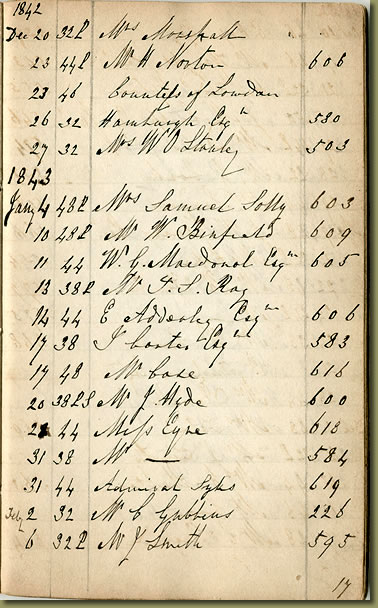 1842
Dec 20 32L Mrs Marshall
23 44L Mr H Norton 606
23 46 Countess of Lowdan
26 32 Hamburgh Esqr 580
27 32 Mrs W O Stanley 503
1843
Jany 4 48L Mrs Samuel Solly 603
10 48L Mr W. Binfield 609
11 44 W. G. Macdonal Esqr 605
13 38L Mr F. S. Ray
14 44 E Adderley Esqr 606
17 38 J Carter Esqr 583
17 48 Mr Case 616
20 38LS Mr J Hyde 600
44 Miss Eyre 618
31 38 Mr — 584
31 44 Admiral Sykes 619
Feby 2 32 Mr C Gubbins 226
6 32L Mr J Smith 595
17